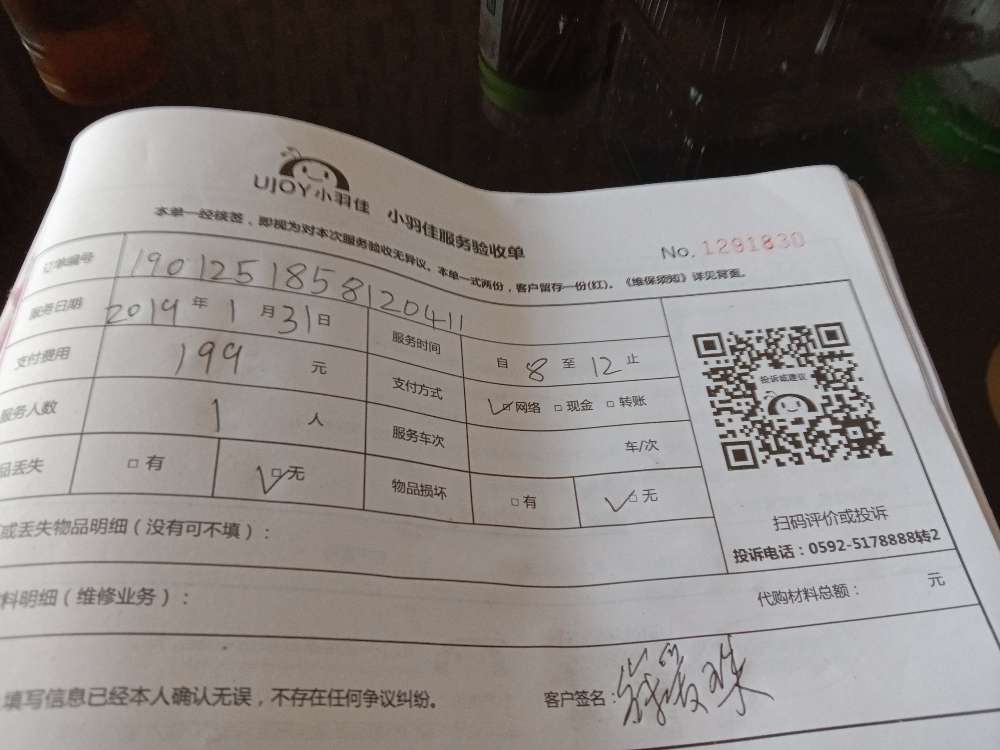 UJOY小羽佳 小羽佳服务验收单
No. 1291830
本单一经核签、即视为对本次服务验收无异议。本单一式两份，客户留存一份(红)。《维保须知》详见背面。
订单编号 1901251858120411
服务日期 2019 年 1 月 31 日 服务时间 自 8 至 12 止
支付费用 199 元 支付方式 ☑网络 □现金 □转账
服务人数 1 人 服务车次 车/次
品丢失 □有 ☑无 物品损坏 □有 ☑无
投诉或建议
扫码评价或投诉
投诉电话：0592-5178888转2
或丢失物品明细（没有可不填）：
料明细（维修业务）： 代购材料总额： 元
填写信息已经本人确认无误，不存在任何争议纠纷。 客户签名：